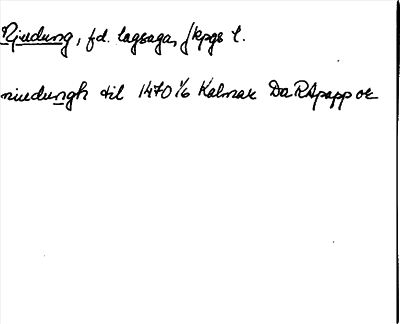 Njudung, fd. lagsaga, Jkpgs l.
niudungh til 1470 1/6 Kalmar Da RApapp or